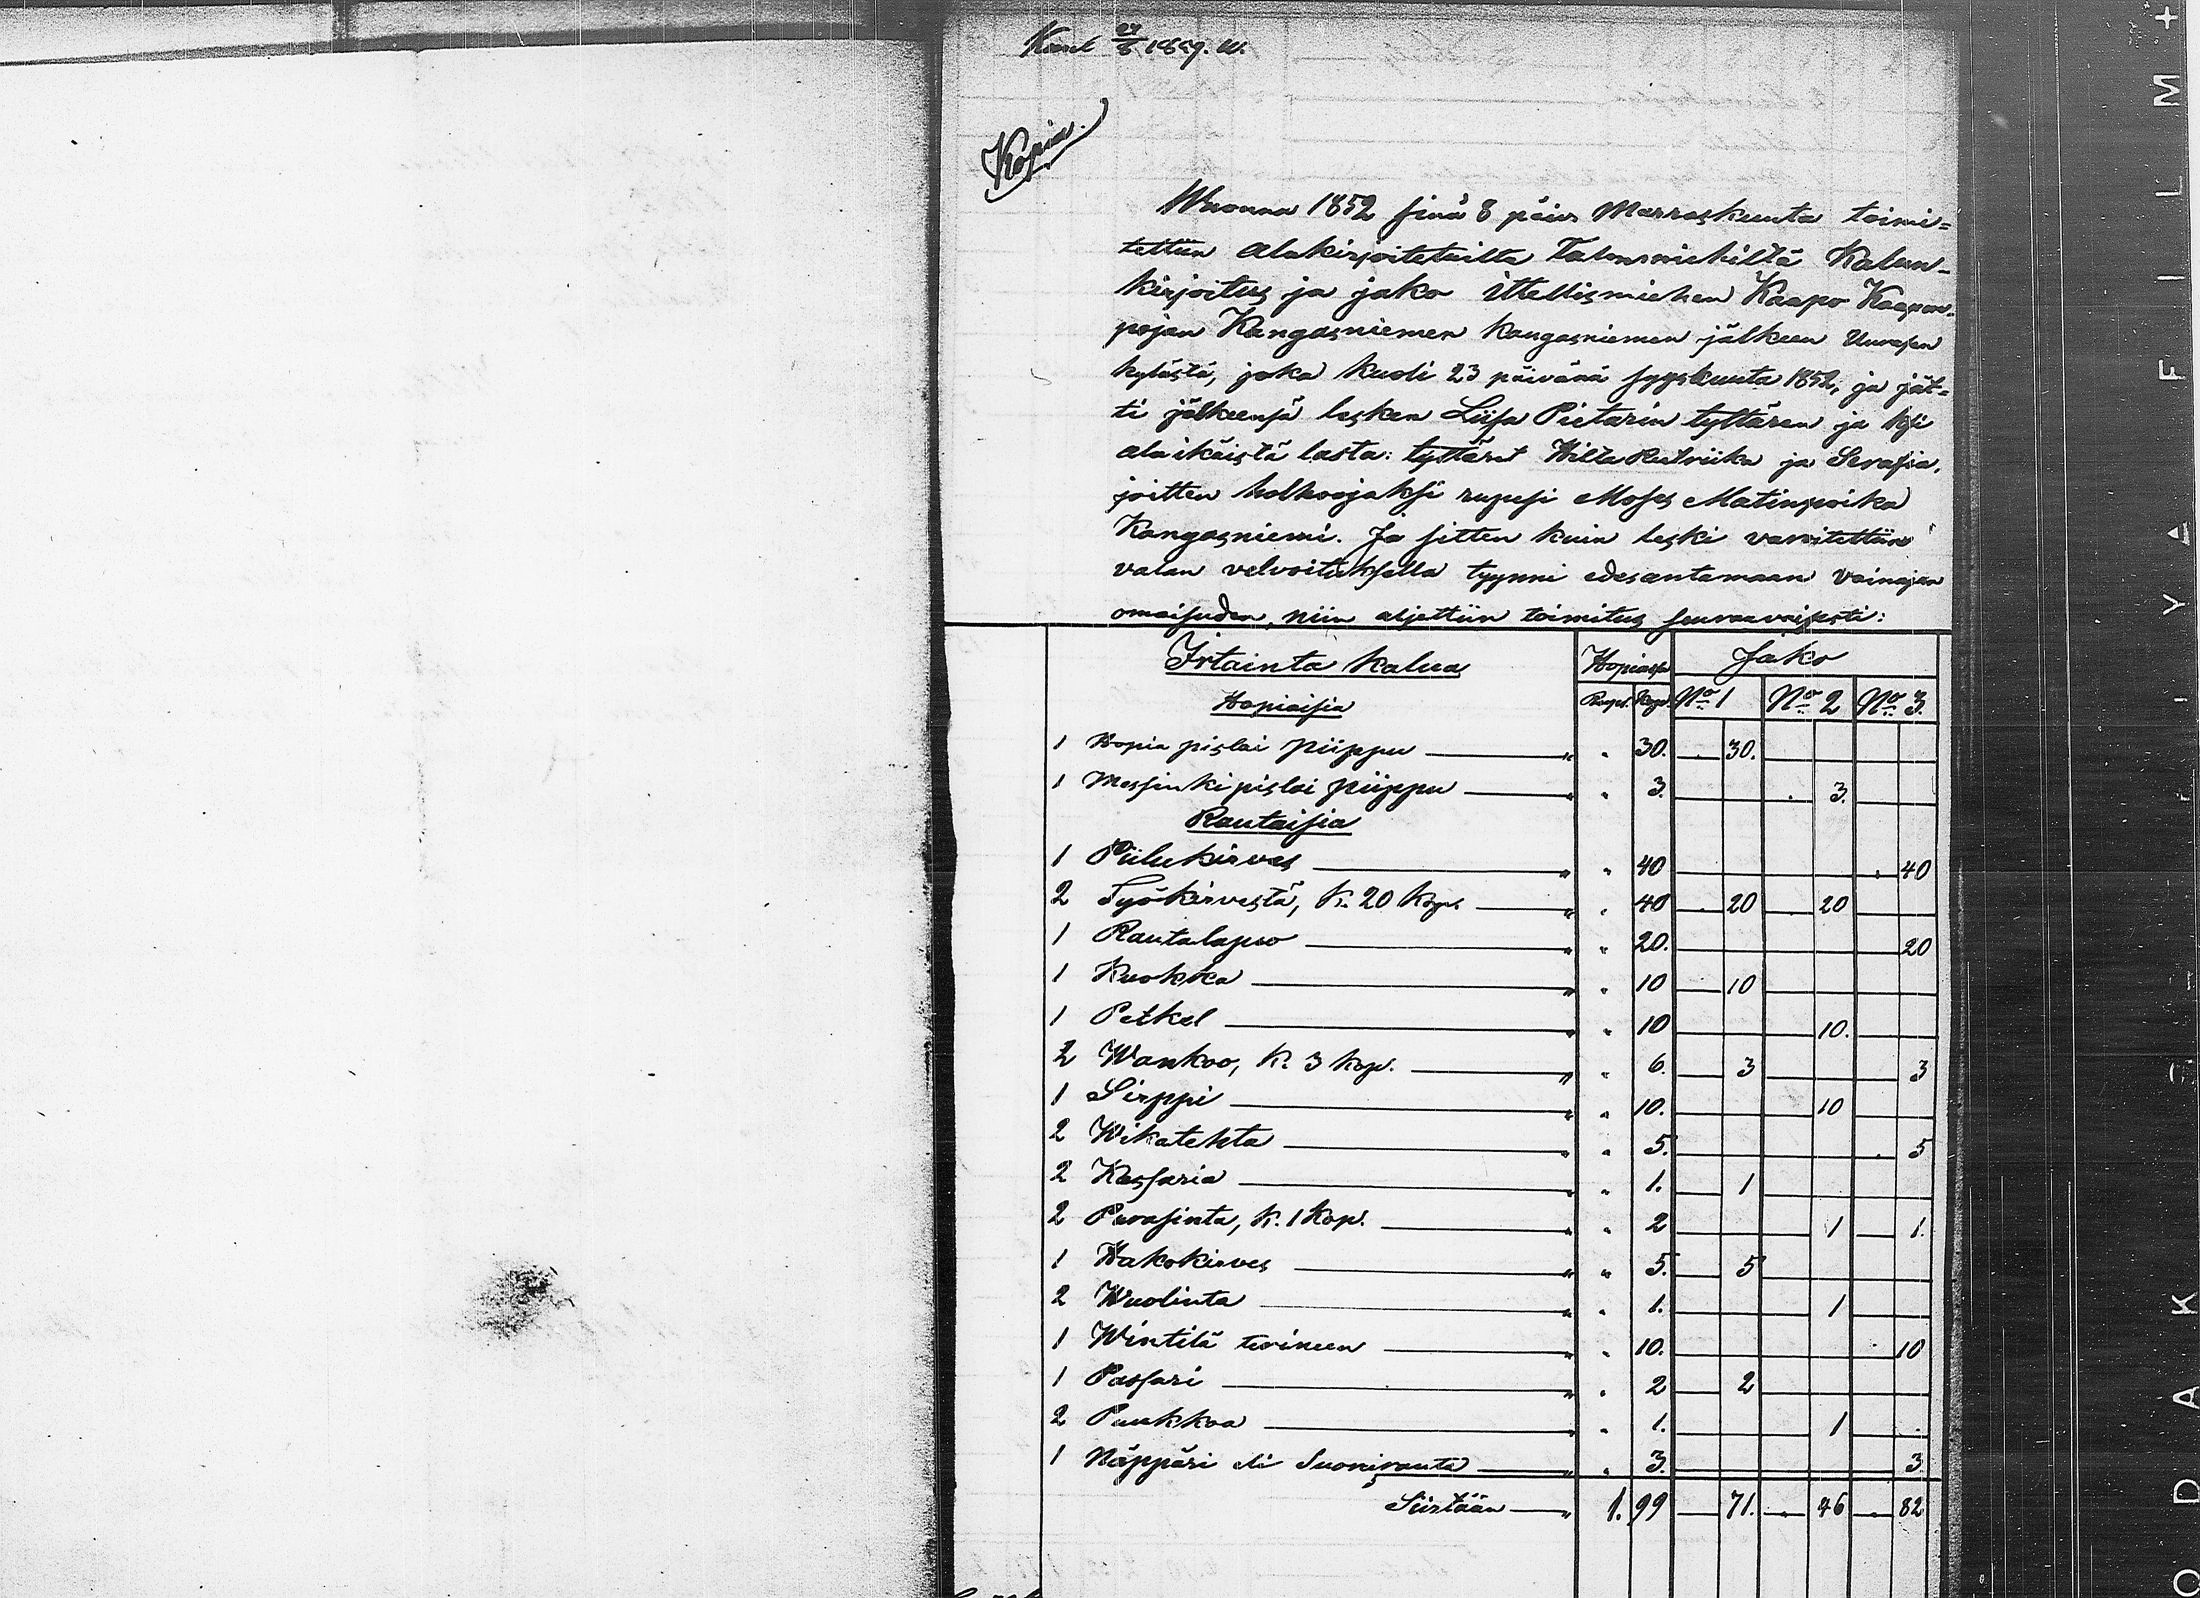 1859.
Kopia.
Wuonna 1852 sinä 8 päiv. Marraskuuta toimi=
tettiin alakirjoitetuilta Talonmiehiltä Kalun=
kirjoitus ja jako ittellismiehen Kaapo Kaapon=
pojan Kangasniemen Kangasniemen jälkeen Uurasen
kylästä, joka kuoli 23 päivänä syyskuuta 1852, ja jät=
ti jälkeensä lesken Liisa Pietarin tyttären ja ksi
alaikäistä lasta: tyttäret Hilta ja Serafia,
joitten holhoojaksi rupesi Moses Matinpoika
Kangasniemi. Ja sitten kuin leski varoitettiin
valan velvoituksella tyynni edesantamaan vainajan
omaisuden, niin aljettiin toimitus seuraavaisesti:
Irtainta kalua Hopiassa Jako
Hopiaisia Rupl. Kop. No 1 No 2 No 3.
1 Hopia pislai piippu " " 30. 30.
1 Messinki pislai piippu " " 3. 3.
Rautaisia
1 Piilukirves " " 40 40
2 Työkirvestä, K. 20 Kop. " " 40 20 20
1 Rautalapio " " 20. 20
1 Kuokka " " 10 10
1 Petkel " " 10 10.
2 Wankoo, K. 3 Kop. " " 6. 3 3
1 Sirppi " " 10. 10
2 Wikatehta " " 5. 5
2 Kassaria " " 1. 1
2 Purasinta, K. 1 Kop. " " 2 1 1.
1 Hakokirves " " 5. 5
2 Wuolinta " " 1. 1
1 Wintilä terineen " " 10. 10
1 Passari " " 2 2
2 Puukkoa " " 1. 1
1 Näppäri eli Suonirauta " " 3. 3
Siirtään " 1. 99 71. 46 82
SAFETY FILM +
KODAK